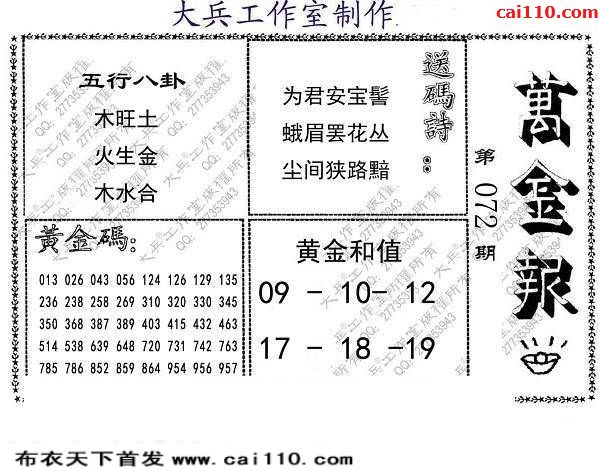 大兵工作室制作
cai110.com
五行八卦
木旺土
火生金
木水合
送碼詩：
为君安宝髻
蛾眉罢花丛
尘间狭路黯
萬金報
第072期
黃金碼:
013 026 043 056 124 126 129 135
236 238 258 269 310 320 330 345
350 368 387 389 403 415 432 463
514 538 639 648 720 731 742 763
785 786 852 859 864 954 956 957
黄金和值
09 - 10- 12
17 - 18 -19
大兵®工作室版權所有
QQ: 277353943
布衣天下首发 www.cai110.com